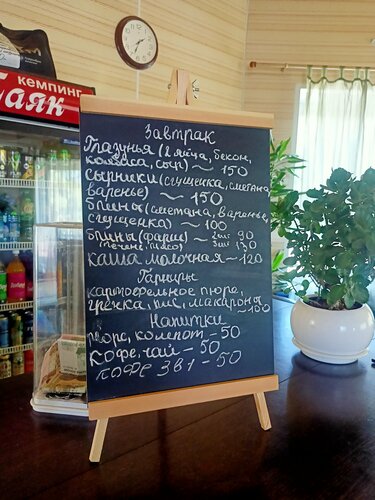 кемпинг
Маяк
Завтрак
Глазунья (2 яйца, бекон,
колбаса, сыр) ~ 150
Сырники (сгущенка, сметана
варенье) ~ 150
блины (сметана, варенье,
сгущенка) ~ 100
блины (фарш) ~ 2шт 90
(печень, мясо) 3шт 130
каша молочная ~ 120
Гарниры
картофельное пюре,
гречка, рис, макароны
~ 100
Напитки
морс, компот - 50
Кофе, чай - 50
кофе 3в1 - 50